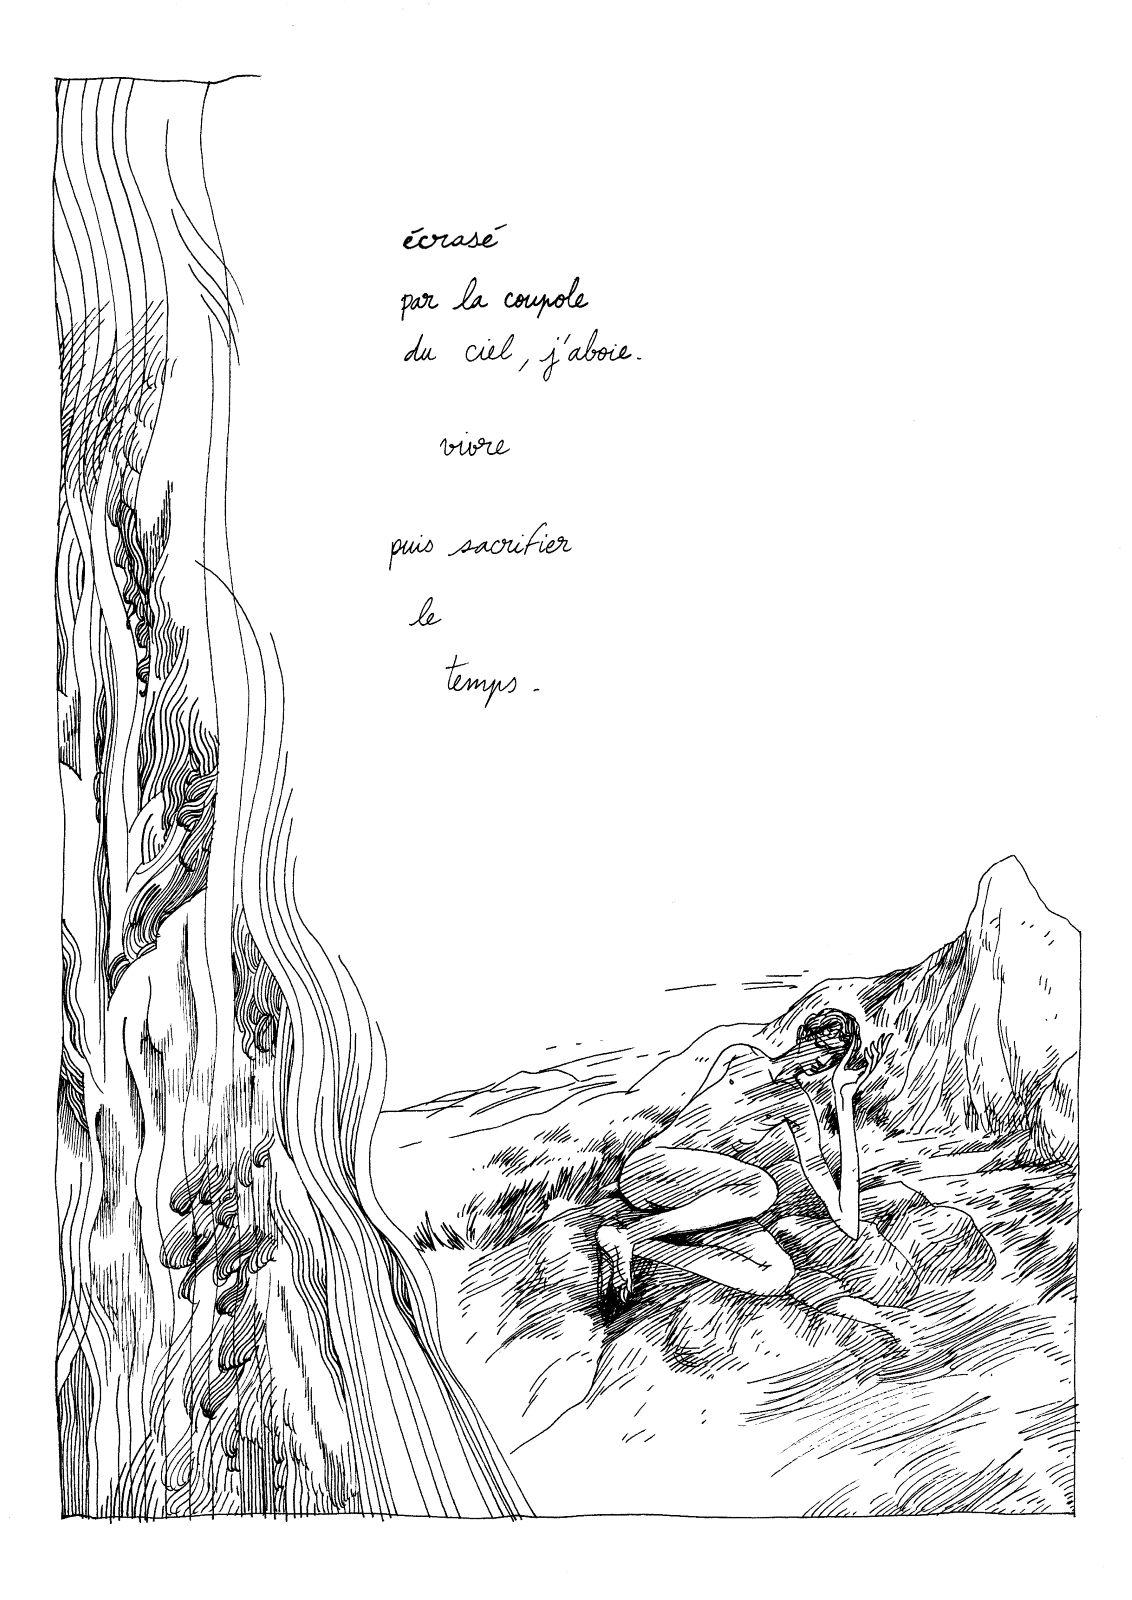 écrasé
par la coupole
du ciel, j'aboie.
vivre
puis sacrifier
le
temps.